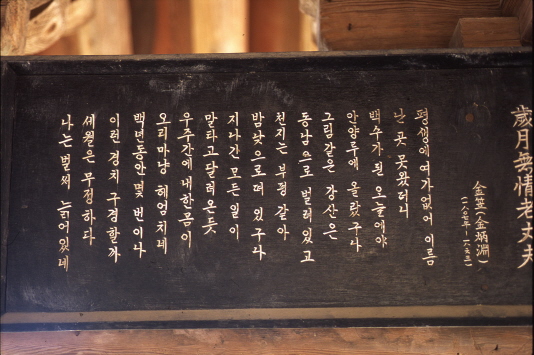 歲月無情老丈夫
金笠(金炳淵)
(一八〇七年-一八六三)
평생에 여가 없어 이름
난 곳 못왔더니
백수가 된 오늘에야
안양루에 올랐구나
그림같은 강산은
동남으로 벌려있고
천지는 부평같아
밤낮으로 떠 있구나
지나간 모든 일이
말타고 달려온듯
우주간에 내 한몸이
오리마냥 헤엄치네
백년동안 몇 번이나
이런 경치 구경할까
세월은 무정하다
나는 벌써 늙어있네